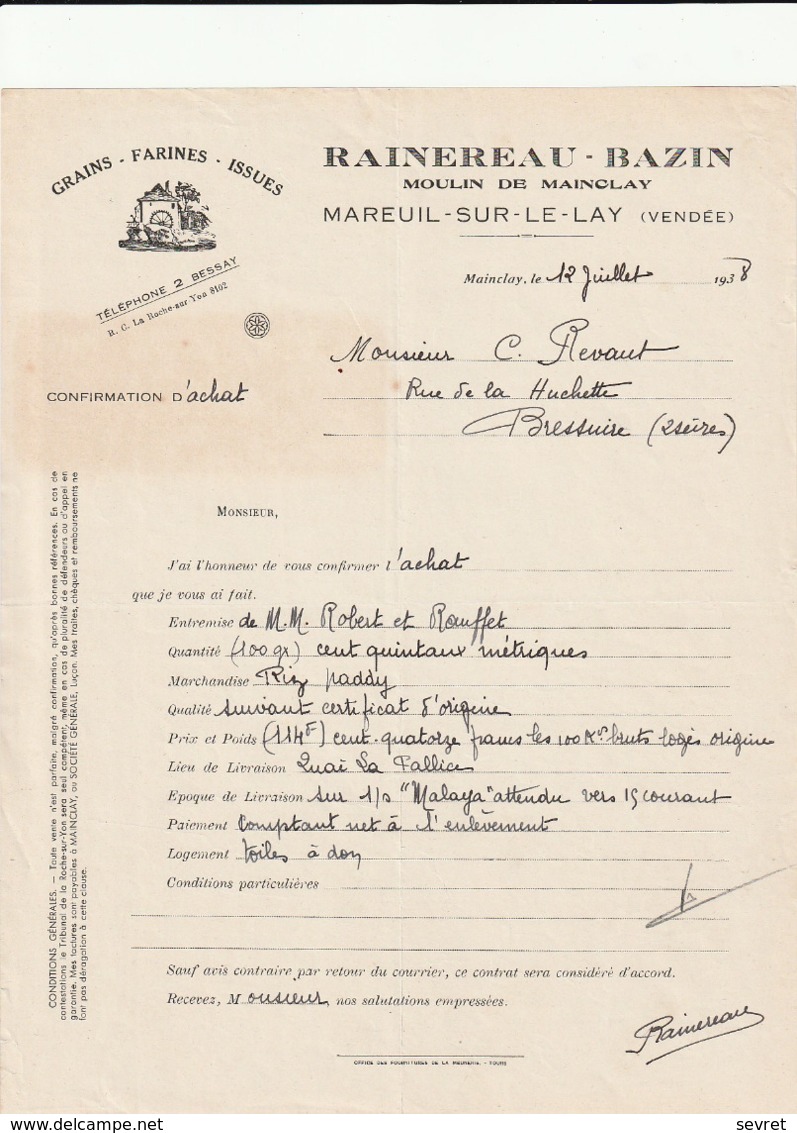 GRAINS - FARINES - ISSUES
TÉLÉPHONE 2 BESSAY
R. C. La Roche-sur Yon 8102
RAINEREAU - BAZIN
MOULIN DE MAINCLAY
MAREUIL-SUR-LE-LAY (VENDÉE)
Mainclay, le 12 Juillet 1938
Monsieur C. Revaut
Rue de la Huchette
Bressuire (2 sèvres)
CONFIRMATION D'achat
MONSIEUR,
J'ai l'honneur de vous confirmer l'achat
que je vous ai fait.
Entremise de M.M. Robert et Rouffet
Quantité (100 qx) cent quintaux métriques
Marchandise Riz paddy
Qualité suivant certificat d'origine
Prix et Poids (114F) cent-quatorze francs les 100 Kos bruts logés origine
Lieu de Livraison Quai La Pallice
Epoque de Livraison sur s/s "Malaya" attendu vers 15 courant
Paiement Comptant net à l'enlèvement
Logement toiles à don
Conditions particulières
Sauf avis contraire par retour du courrier, ce contrat sera considéré d'accord.
Recevez, Monsieur, nos salutations empressées.
Rainereau
OFFICE DES FOURNITURES DE LA MEUNERIE. - TOURS
CONDITIONS GÉNÉRALES. — Toute vente n'est parfaite, malgré confirmation, qu'après bonnes références. En cas de
contestations le Tribunal de la Roche-sur-Yon sera seul compétent, même en cas de pluralité de défendeurs ou d'appel en
garantie. Mes factures sont payables à MAINCLAY, ou SOCIÉTÉ GÉNÉRALE, Luçon. Mes traites, chèques et remboursements ne
font pas dérogation à cette clause.
sevret